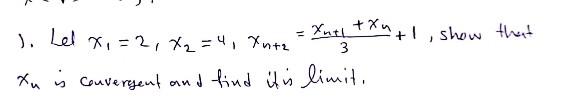 1. Let x₁ = 2, x₂ = 4, xₙ₊₂ = (xₙ₊₁ + xₙ)/3 + 1, show that
xₙ is convergent and find it's limit.